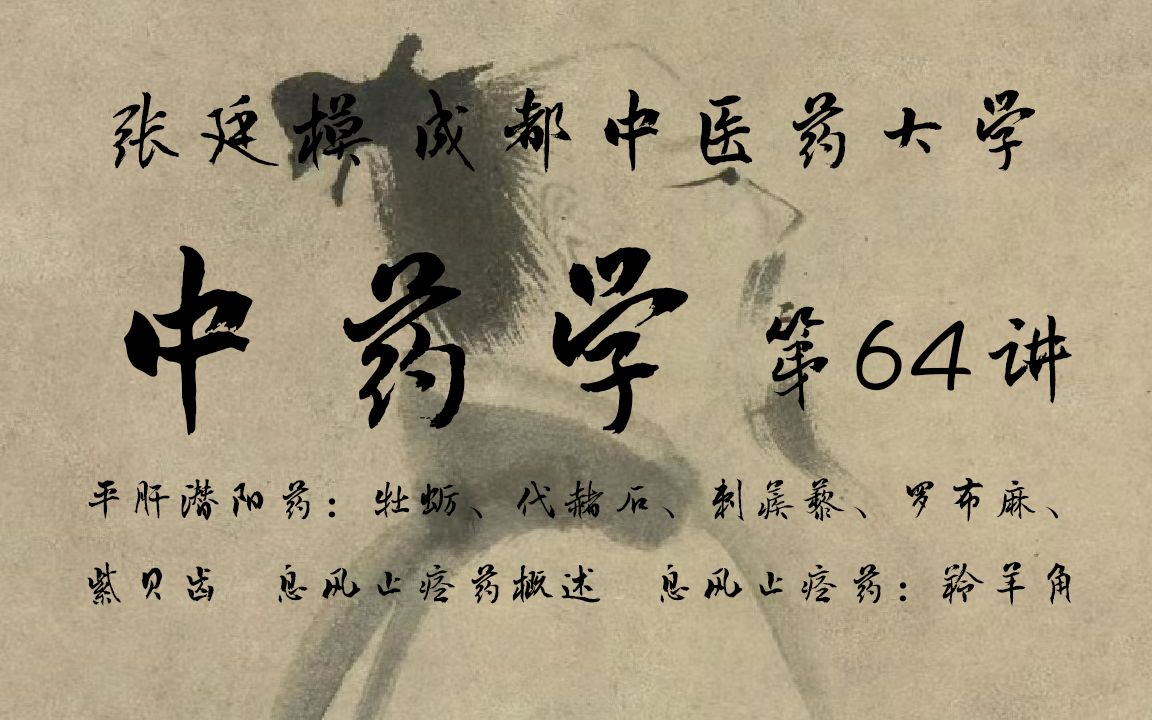 张廷模成都中医药大学
中药学 第64讲
平肝潜阳药：牡蛎、代赭石、刺蒺藜、罗布麻、
紫贝齿 息风止痉药概述 息风止痉药：羚羊角